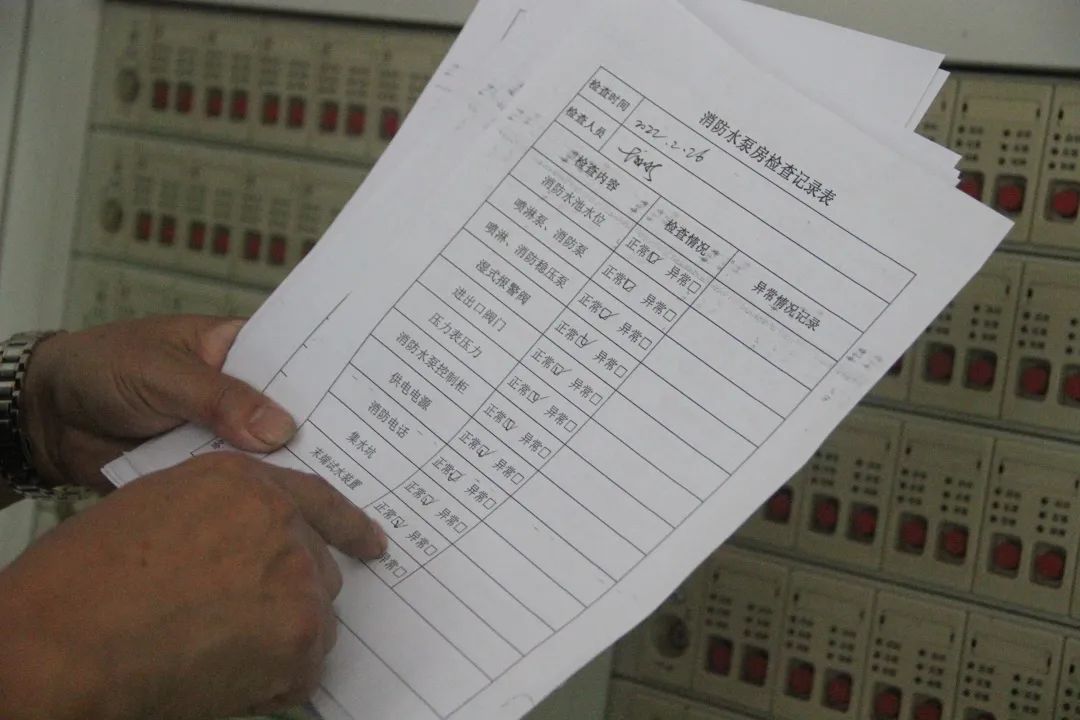 消防水泵房检查记录表
检查时间 2022.2.26
检查人员
检查内容 检查情况 异常情况记录
消防水池水位 正常☑ 异常□
喷淋泵、消防泵 正常☑ 异常□
喷淋、消防稳压泵 正常☑ 异常□
湿式报警阀 正常☑ 异常□
进出口阀门 正常☑ 异常□
压力表压力 正常☑ 异常□
消防水泵控制柜 正常☑ 异常□
供电电源 正常☑ 异常□
消防电话 正常☑ 异常□
集水坑 正常☑ 异常□
末端试水装置 异常□